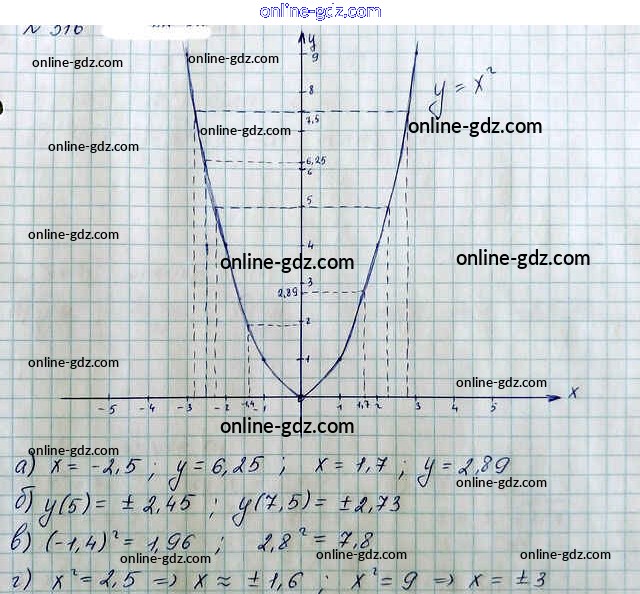 online-gdz.com
N 516
y
9
online-gdz.com
online-gdz.com
8
y = x²
7,5
online-gdz.com
online-gdz.com
online-gdz.com
6,25
6
5
online-gdz.com
4
online-gdz.com
online-gdz.com
3
2,89
2
1
online-gdz.com
online-gdz.com
-5 -4 -3 -2 -1,4 -1 1 1,7 2 3 4 5 x
online-gdz.com
online-gdz.com
а) x = -2,5 ; y = 6,25 ; x = 1,7 ; y = 2,89
online-gdz.com
б) y(5) = ± 2,45 ; y(7,5) = ± 2,73
online-gdz.com
в) (-1,4)² = 1,96 ; 2,8² = 7,8
online-gdz.com online-gdz.com online-gdz.com
г) x² = 2,5 => x ≈ ± 1,6 ; x² = 9 => x = ± 3
online-gdz.com online-gdz.com